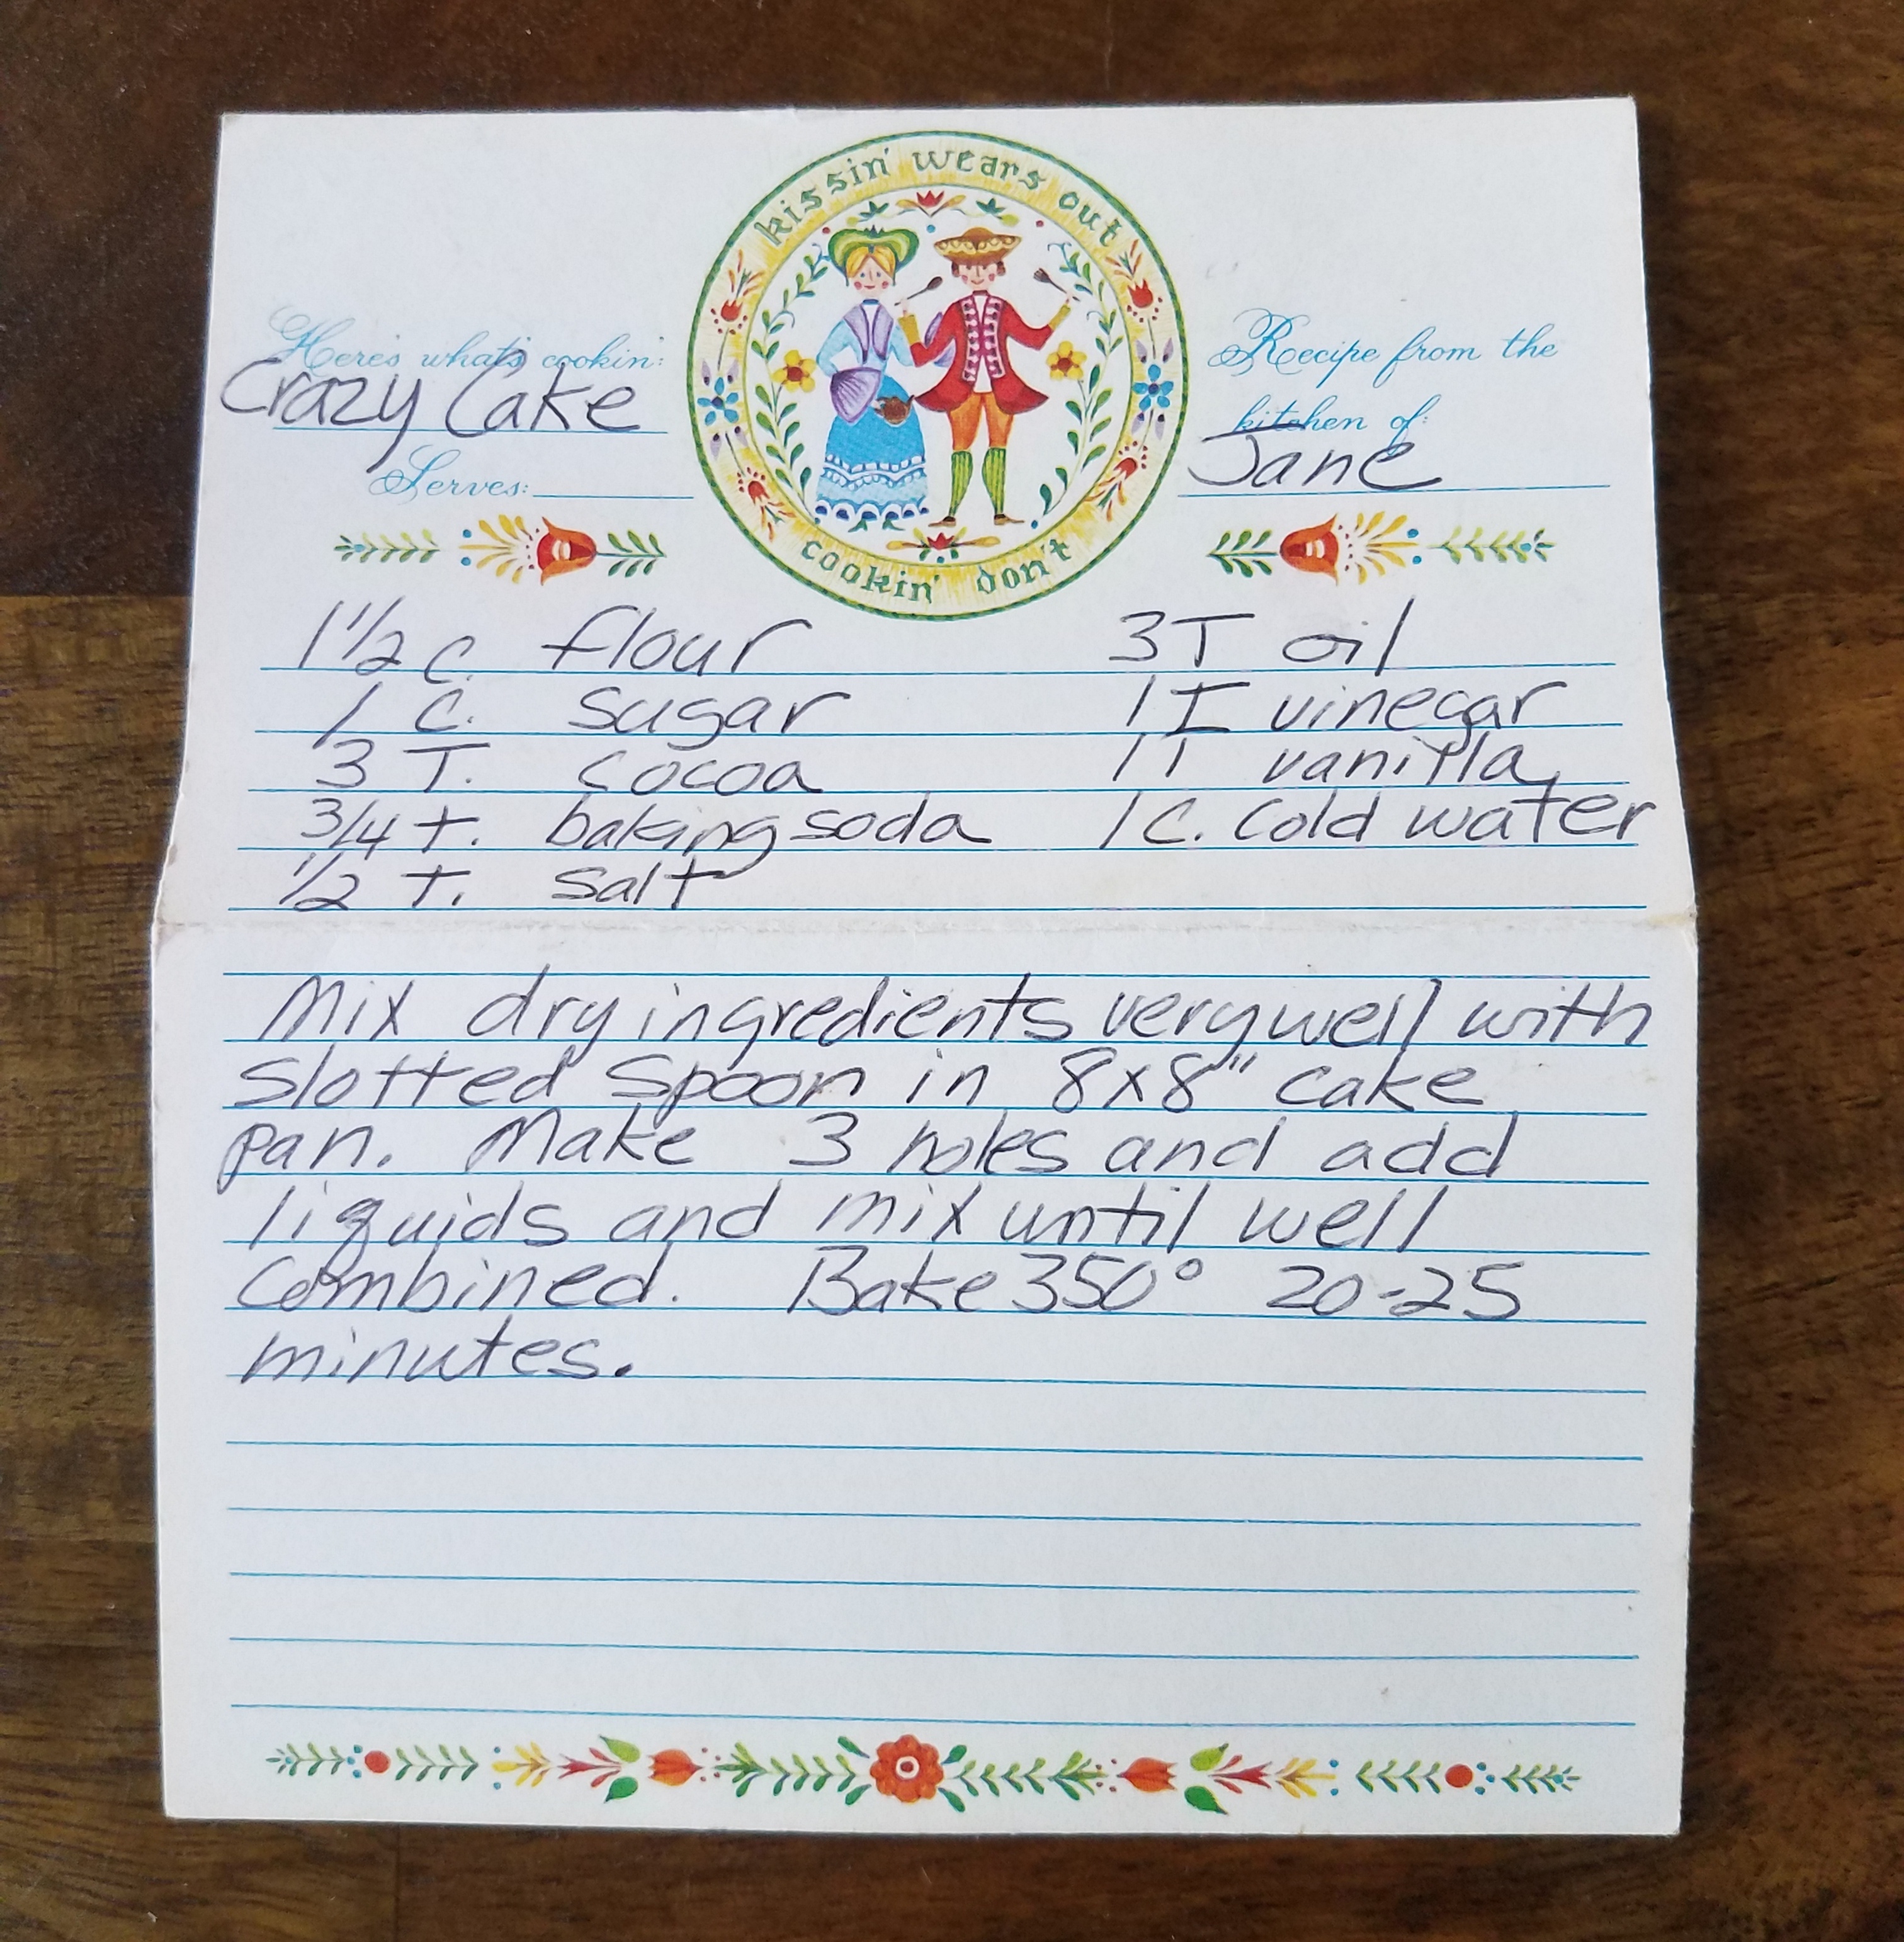 kissin' wears out
cookin' don't
Here's what's cookin:
Crazy Cake
Serves:
Recipe from the
kitchen of:
Jane
1 1/2 c. flour
1 c. sugar
3 T. cocoa
3/4 t. baking soda
1/2 t. salt
3 T oil
1 T vinegar
1 T vanilla
1 C. cold water
Mix dry ingredients very well with
slotted spoon in 8x8" cake
pan. Make 3 holes and add
liquids and mix until well
combined. Bake 350° 20-25
minutes.